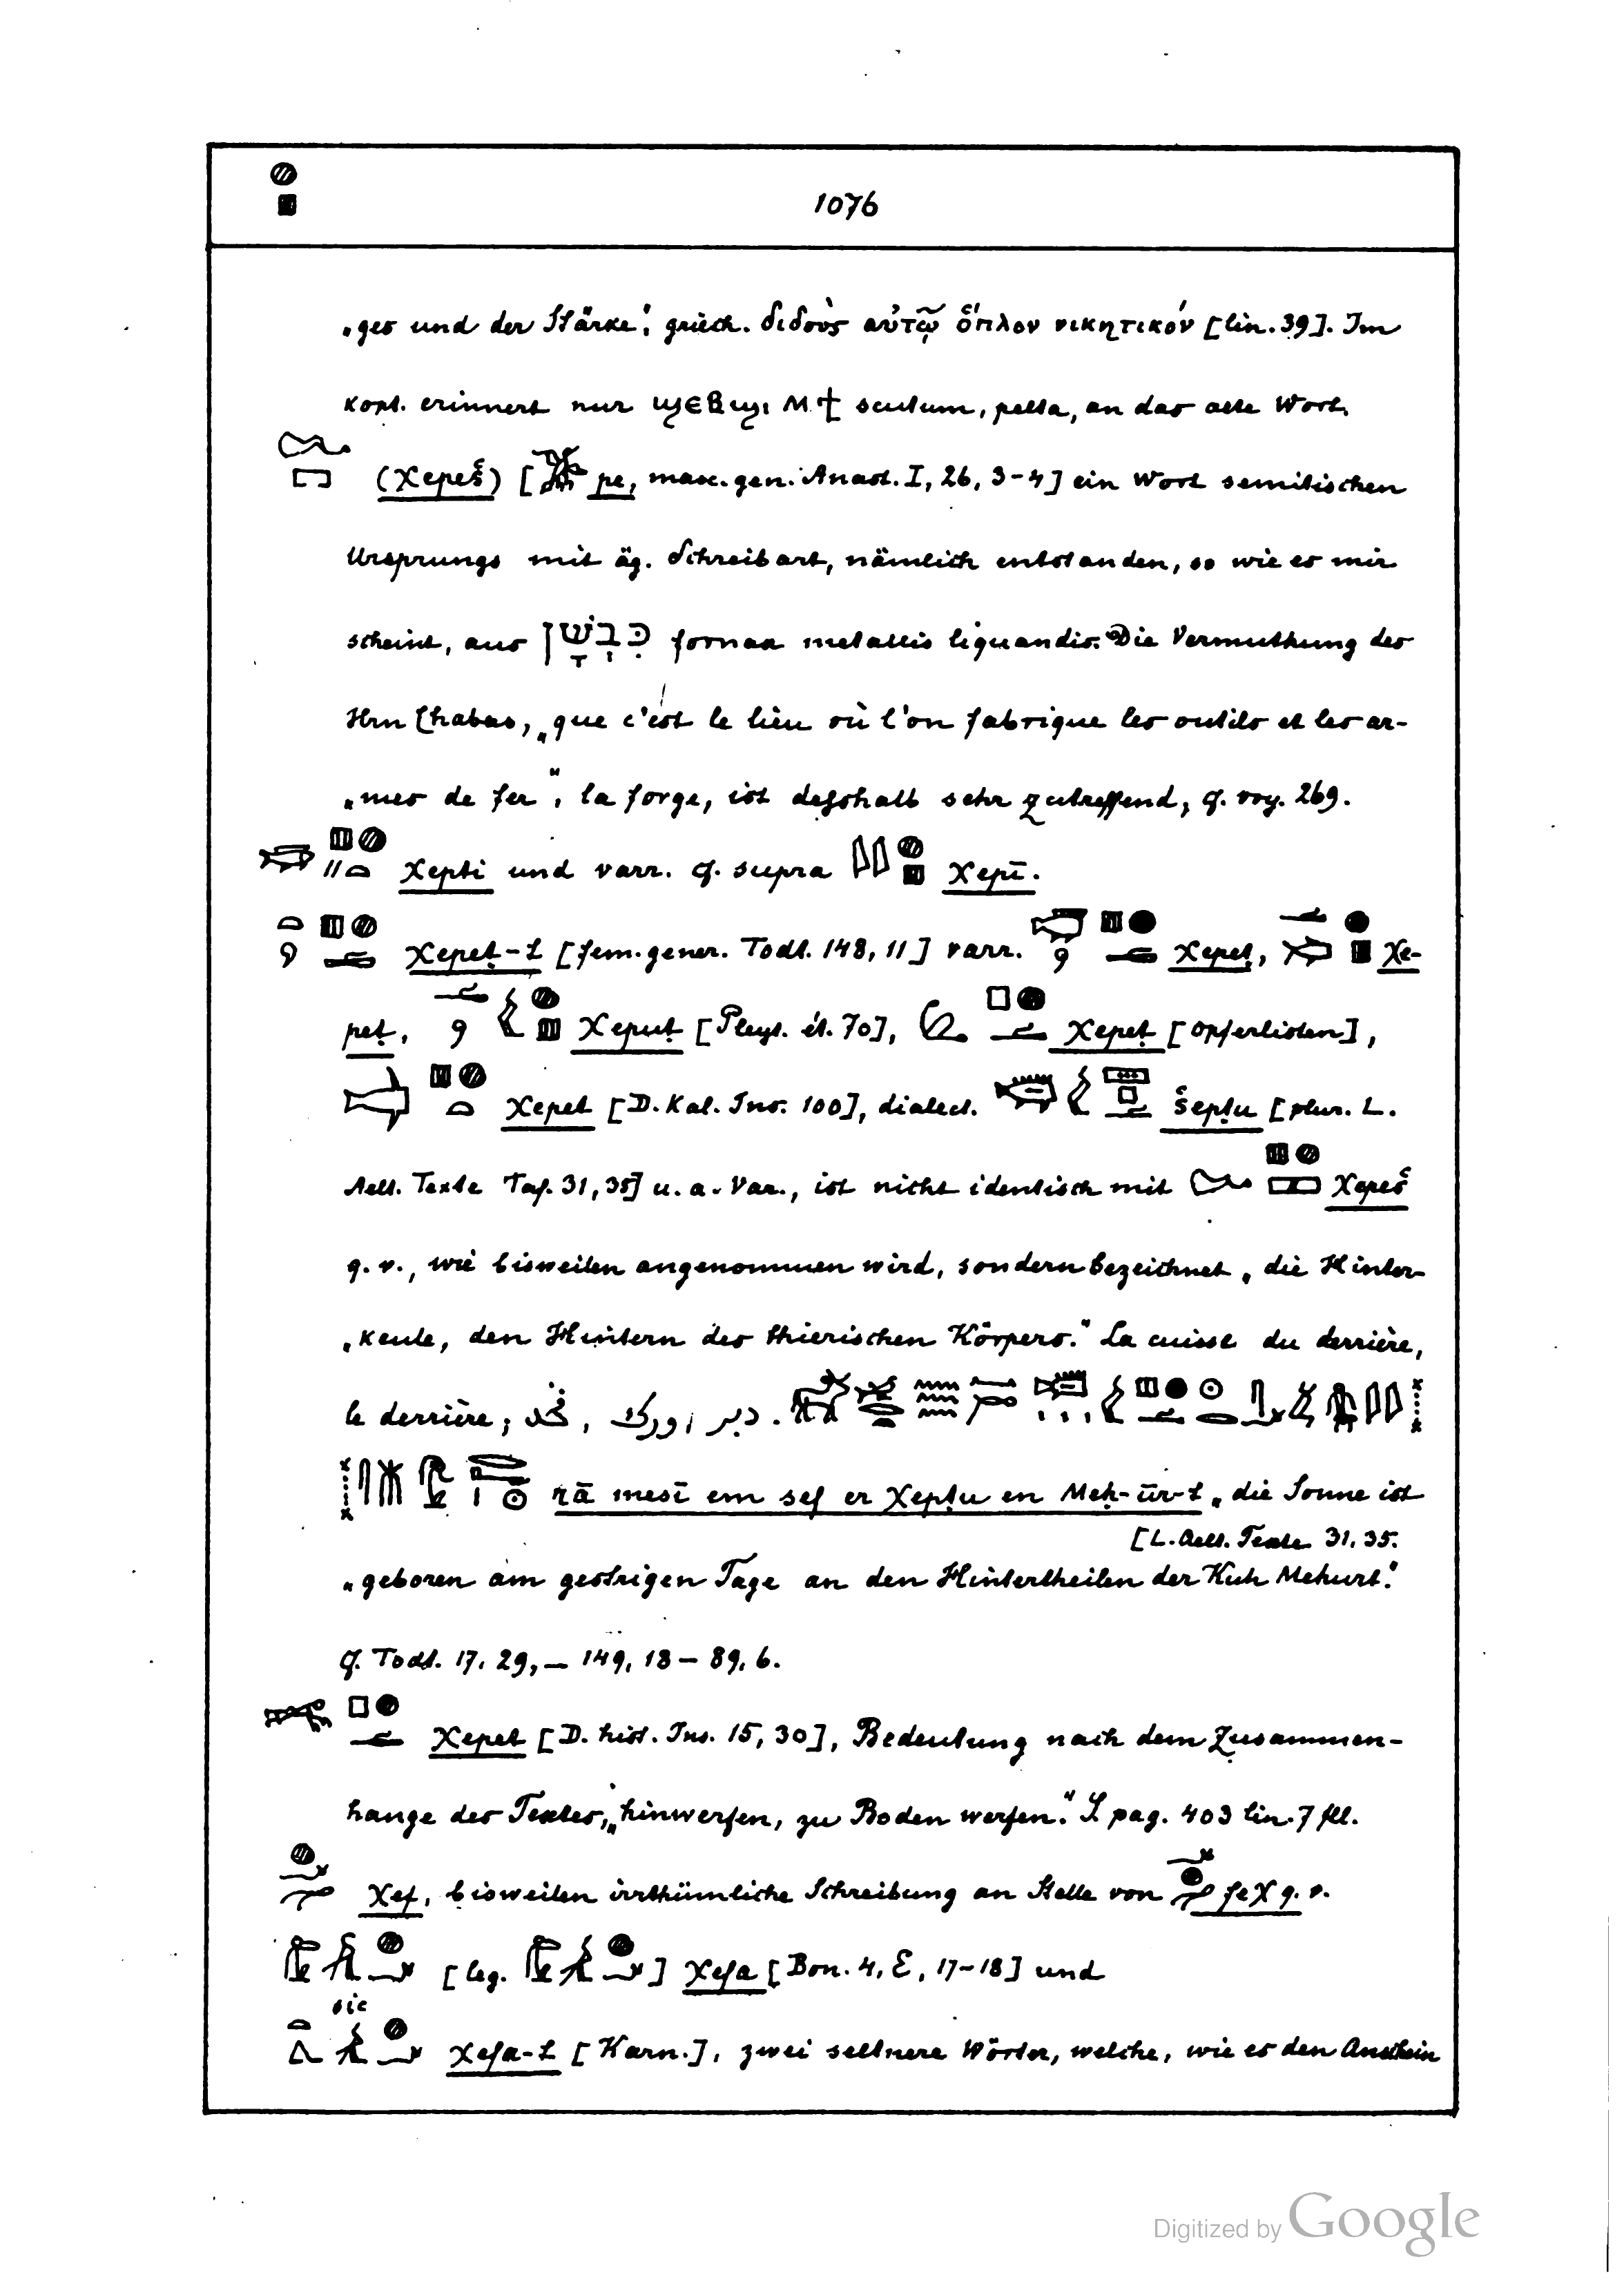 1076
„ges und der Stärke“, griech. διδοὺς αὐτῷ ὅπλον νικητικόν [lin. 39]. Im
kopt. erinnert nur ϣⲉⲃϣⲓ ⲙ ϯ scutum, pelta, an das alte Wort.
(χepeš) [ pe, masc. gen. Anast. I, 26, 3-4] ein Wort semitischen
Ursprungs mit äg. Schreibart, nämlich entstanden, so wie es mir
scheint, aus כִּבְשָׁן fornax metallis liquandis. Die Vermuthung des
Hrn Chabas, „que c'est le lieu où l'on fabrique les outils et les ar-
„mes de fer“, la forge, ist desshalb sehr zutreffend, cf. voy. 269.
χepti und varr. cf. supra χepī.
χepeṭ-t [fem. gener. Todt. 148, 11] varr. χepeṭ, χe-
peṭ, χepuṭ [Pleyt. ét. 70], χepeṭ [Opferlisten],
χepet [D. Kal. Ins. 100], dialect. šepṭu [plur. L.
Aelt. Texte Taf. 31, 35] u. a. Var., ist nicht identisch mit χepeš
q. v., wie bisweilen angenommen wird, sondern bezeichnet „die Hinter-
„keule, den Hintern des thierischen Körpers.“ La cuisse du derrière,
le derrière; فخد, ورك, دبر.
rā mesī em sef er χepṭu en Meḥ-ūr-t „die Sonne ist
[L. Aelt. Texte 31, 35.
„geboren am gestrigen Tage an den Hintertheilen der Kuh Mehurt.“
cf. Todt. 17, 29, — 149, 18 — 89, 6.
χepet [D. hist. Ins. 15, 30], Bedeutung nach dem Zusammen-
hange des Textes, „hinwerfen, zu Boden werfen.“ S. pag. 403 lin. 7 fll.
χef, bisweilen irrthümliche Schreibung an Stelle von feχ q. v.
[leg. ] χefa [Bon. 4, E, 17-18] und
sic
χefa-t [Karn.], zwei seltnere Wörter, welche, wie es den Anschein
Digitized by Google